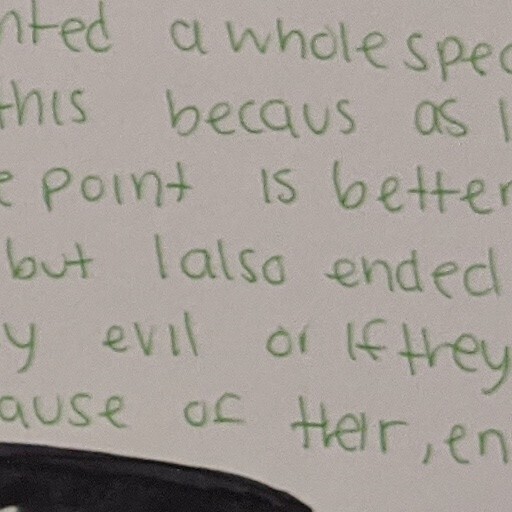 nted a whole spec
this becaus as I
e point is better
but I also ended
y evil or if they
ause of their, en